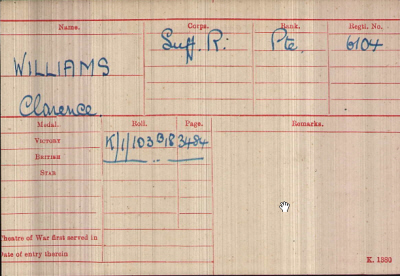 Name. Corps. Rank. Regtl. No.
WILLIAMS Suff. R: Pte. 6104
Clarence.
Medal. Roll. Page. Remarks.
VICTORY K/1/103 B18 3484
BRITISH
STAR
Theatre of War first served in
Date of entry therein
K. 1380